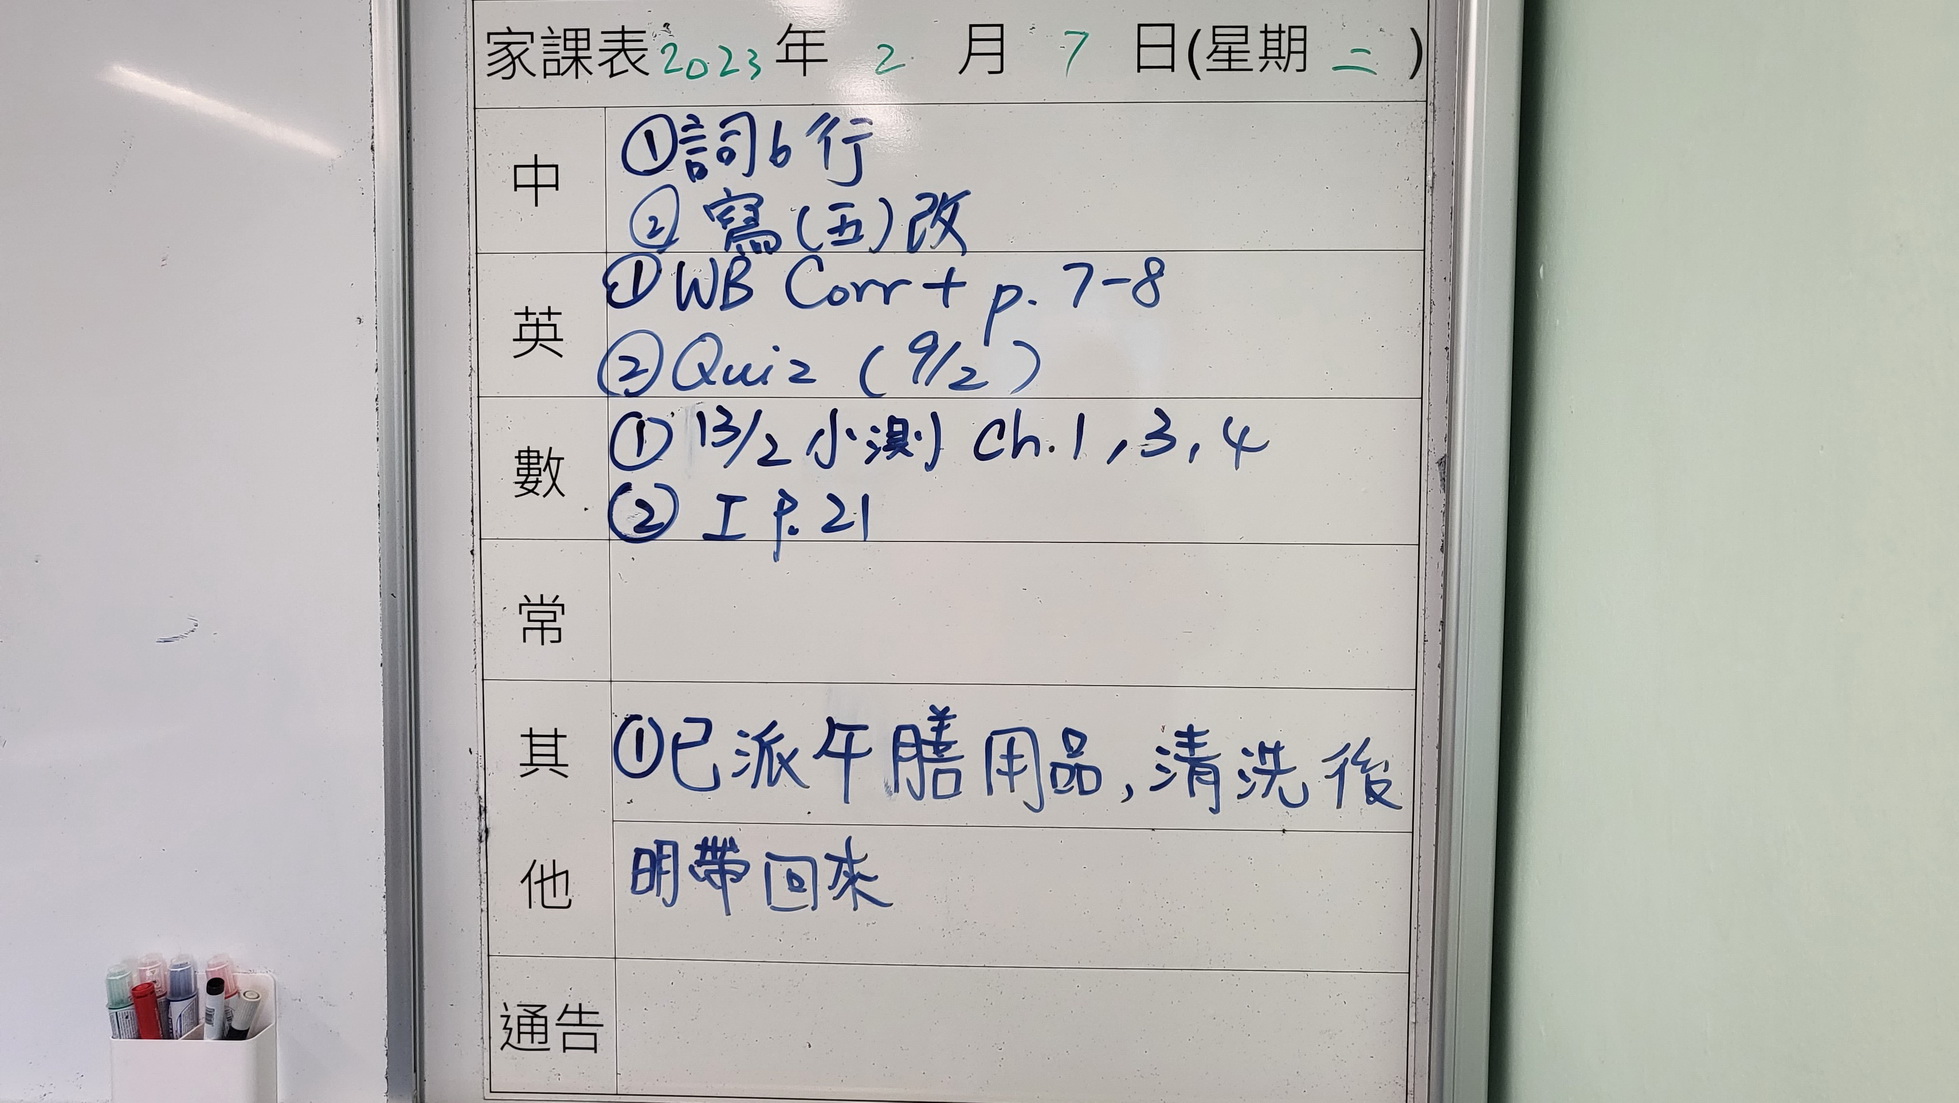 家課表2023年 2 月 7 日(星期 二 )
中
①詞6行
② 寫(五)改
英
①WB Corr + p. 7-8
②Quiz (9/2)
數
① 13/2 小測 Ch. 1, 3, 4
② 工 p. 21
常
其他
①已派午膳用品,清洗後
明帶回來
通告